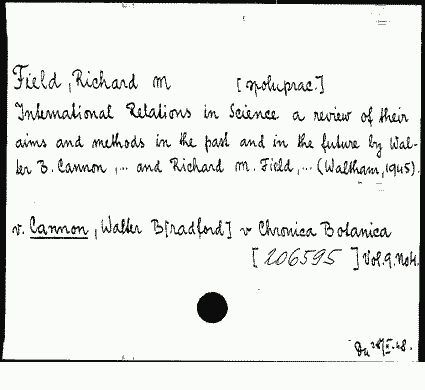 Field, Richard M [spoluprac.]
International Relations in Science a review of their
aims and methods in the past and in the future by Wal-
ter B. Cannon,... and Richard M. Field,... (Waltham, 1945).
v. Cannon, Walter B[radford] v Chronica Botanica
[206595] Vol. 9. No 4.
28/X.48.